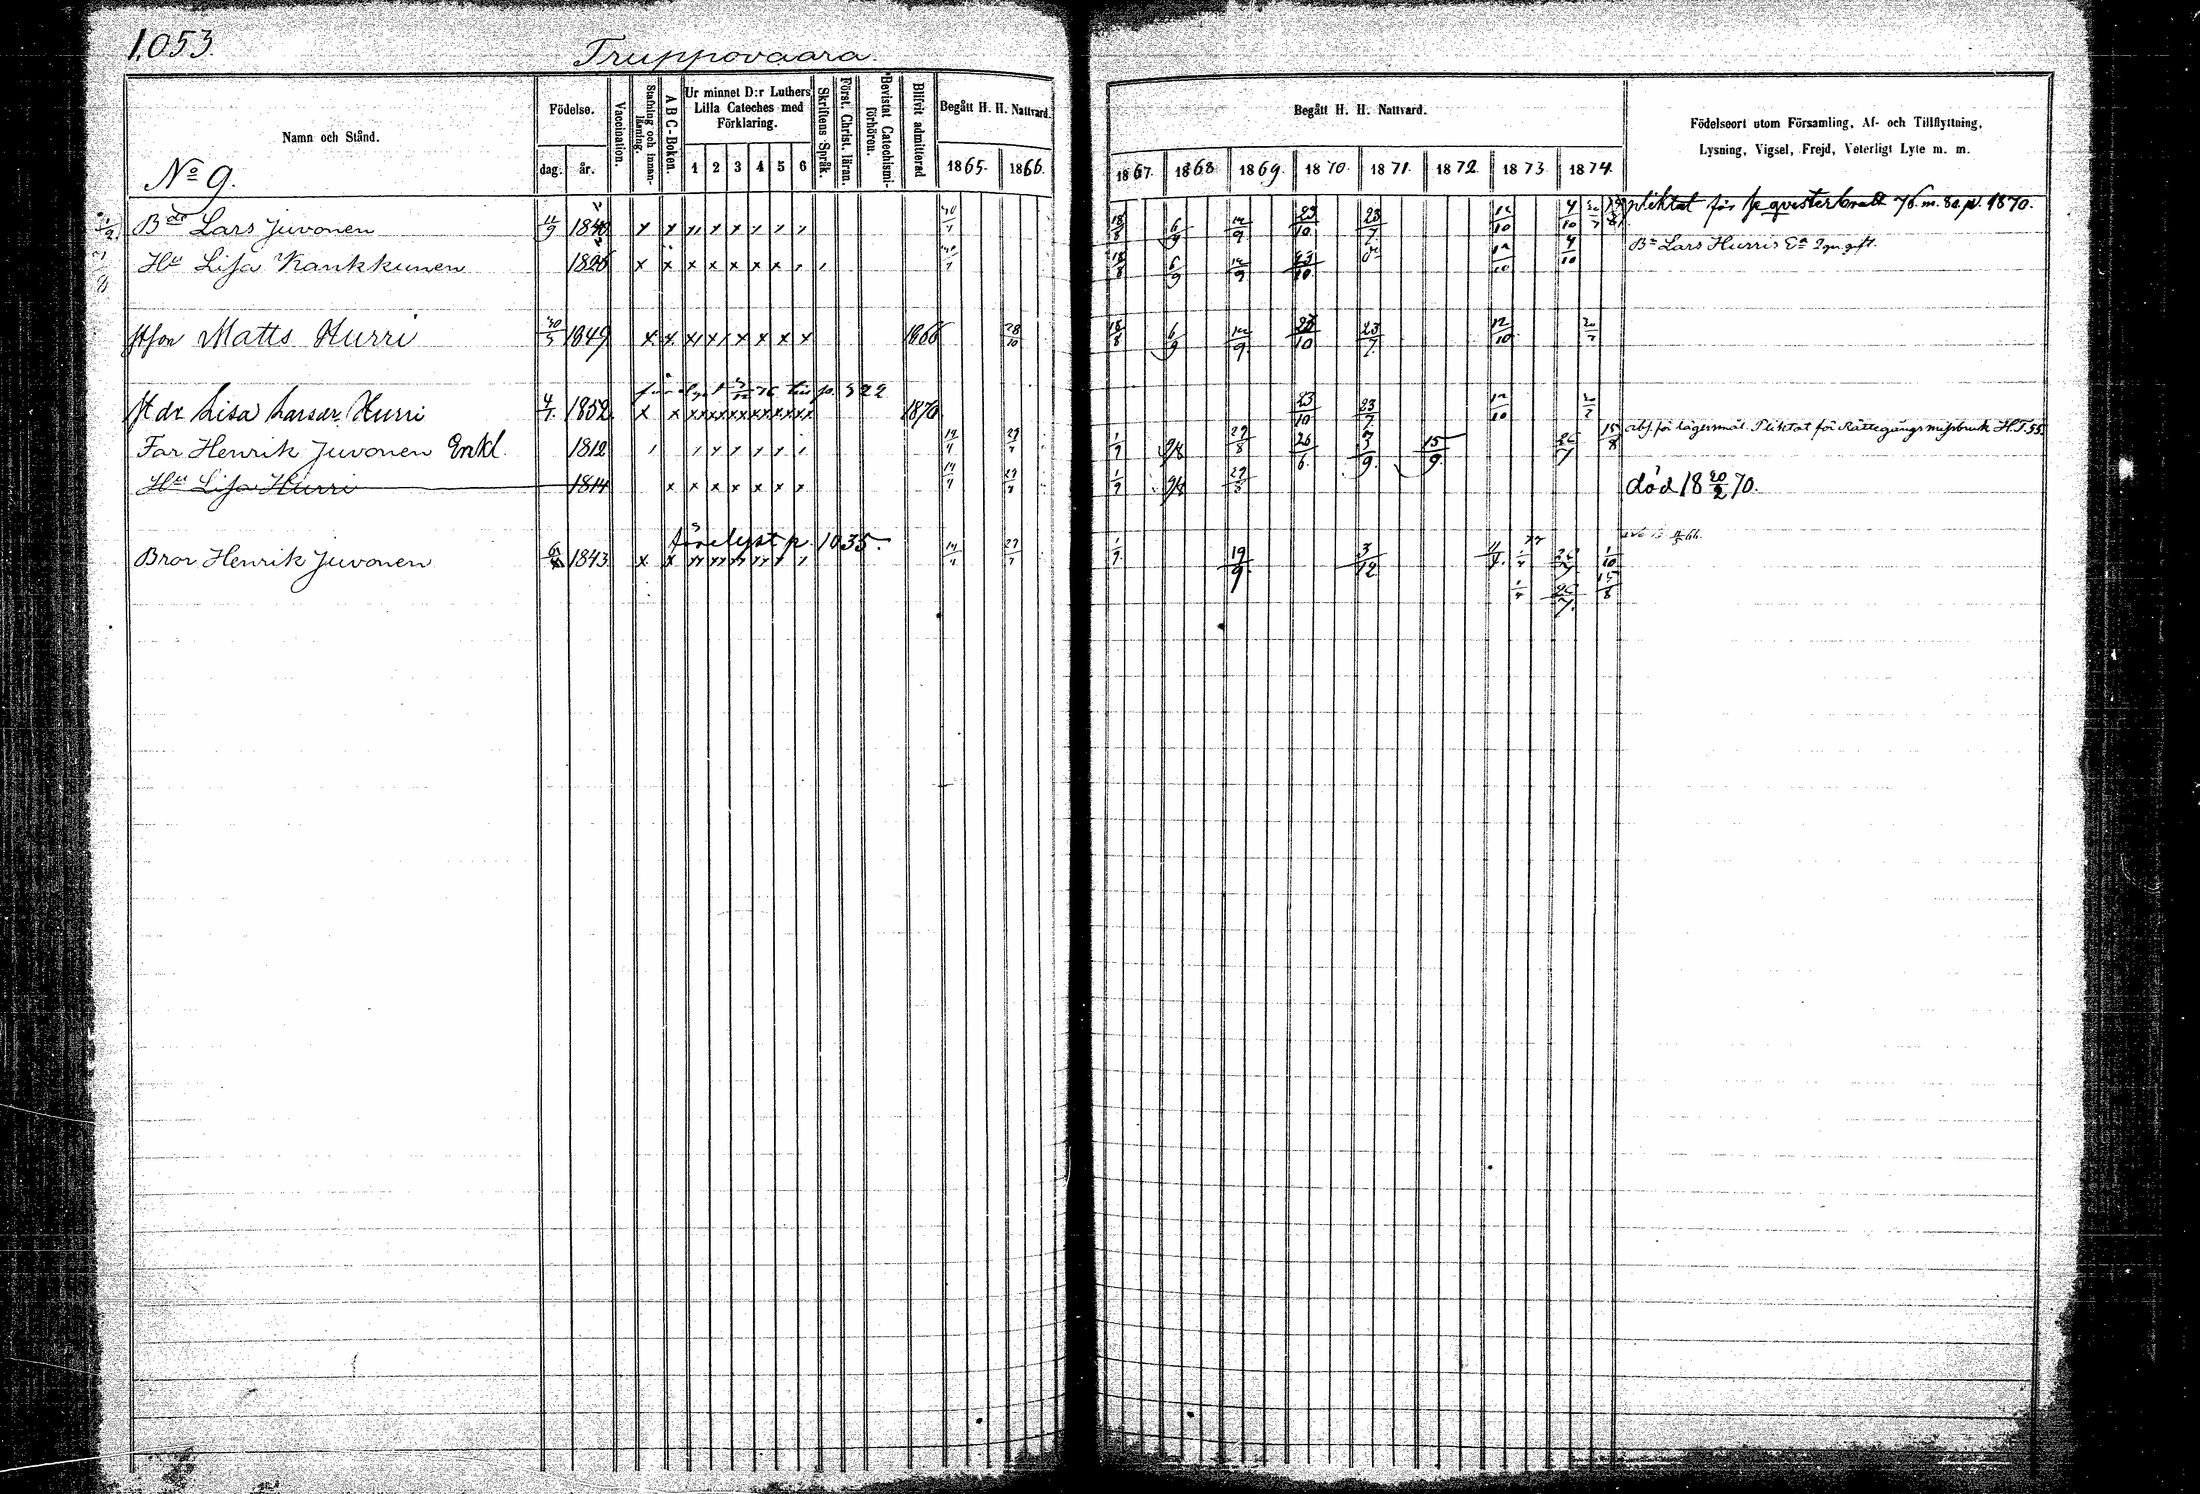 1053.
Truppovaara.
Namn och Stånd.
Födelse.
dag.
år.
Vaccination.
Stafning och innan-läsning.
A B C-Boken.
Ur minnet D:r Luthers Lilla Cateches med Förklaring.
1 2 3 4 5 6
Skriftens Språk.
Först. Christ. läran.
Bevistat Catechismi-förhören.
Blifvit admitterad
Begått H. H. Nattvard.
1865. 1866.
Begått H. H. Nattvard.
1867. 1868 1869. 1870. 1871. 1872. 1873 1874.
Födelseort utom Församling, Af- och Tillflyttning,
Lysning, Vigsel, Frejd, Veterligt Lyte m. m.
No 9.
Bde Lars Juvonen 12/9 1840 x x
18/8 6/9 12/9 23/10 23/7 12/10 4/10
pliktat för 76. m. 80 p. 1870.
Hu Lisa Kankkunen 1826 x x x x x x x
18/8 6/9 12/9 23/10 12/10 4/10
Bn Lars Hurris Ea 2 gn gift.
Matts Hurri 1849 x x x x x x x x 1866 28/10
18/8 6/9 12/9 23/10 23/7 12/10
p. 322
dr Lisa Larsdr Hurri 4/7 1852 x x xxxxxxxxxxxx 1870
23/10 23/7 12/10
Far Henrik Juvonen Enkl. 1812
1/9 9/8 29/8 26/6 3/9 15/9 26/7 15/8
abs. för lägersmål. Pliktat för Rättegångs missbruk H.T. 55.
Hu Lisa Hurri 1814 x x x x x x x
1/9 9/8 29/8
död 18 20/2 70.
förelyst p. 1035.
Bror Henrik Juvonen 1843 x x
1/9 19/9 3/12 4/4 26/7 1/10
26/7 15/8